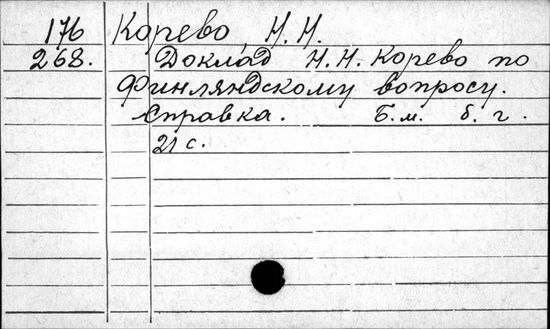 176 Корево, Н. Н.
268. Доклад Н. Н. Корево по
Финляндскому вопросу.
Справка. Б. м. б. г.
21 с.